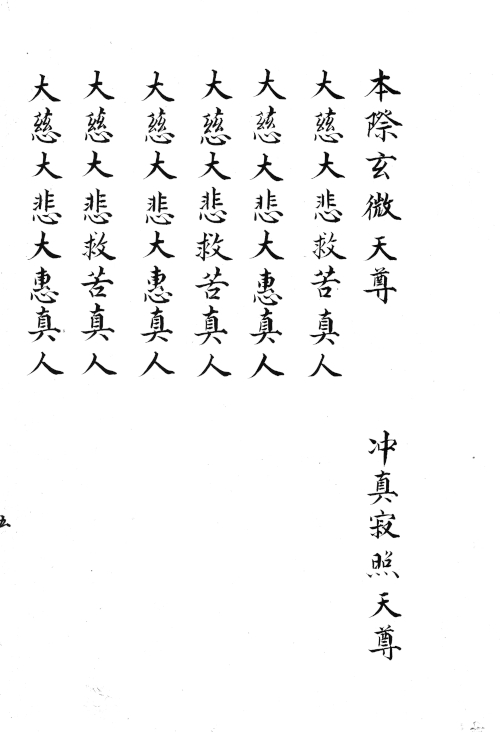 本際玄微天尊　冲真寂照天尊
大慈大悲救苦真人
大慈大悲大惠真人
大慈大悲救苦真人
大慈大悲大惠真人
大慈大悲救苦真人
大慈大悲大惠真人
五